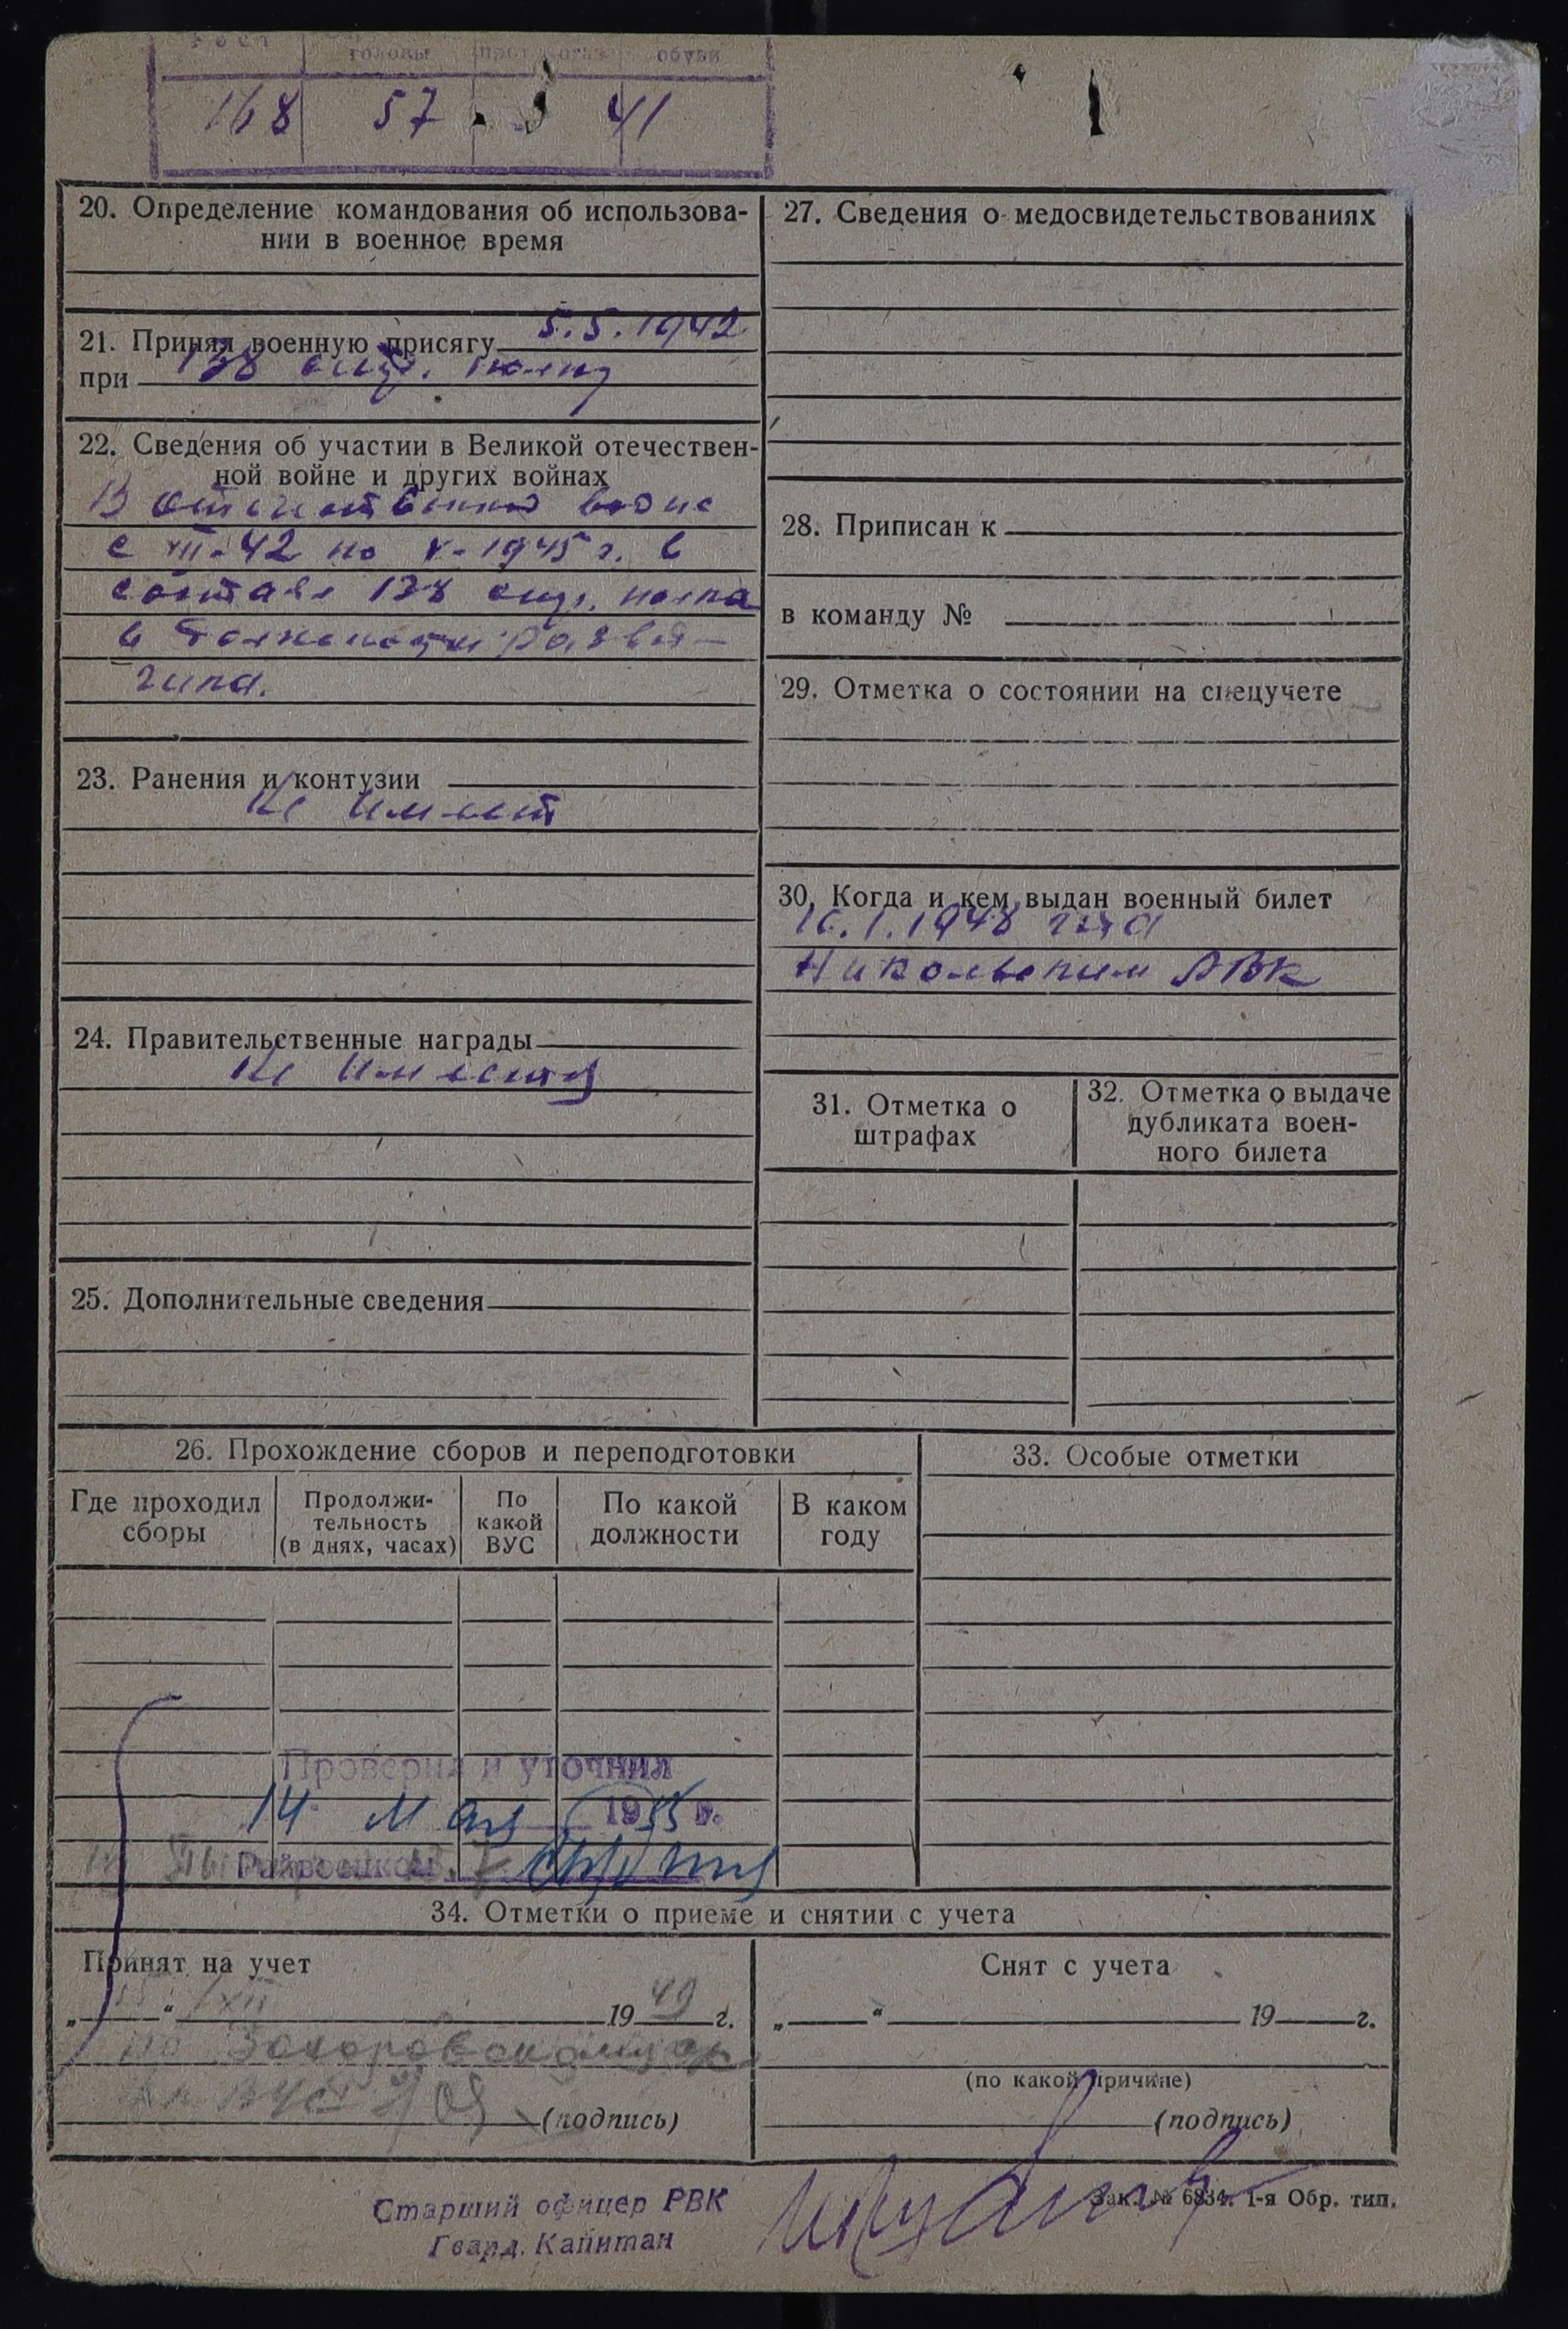 Рост головы противогаз обуви
168 57 41
20. Определение командования об использова-
нии в военное время
21. Принял военную присягу 5.5.1942
при 138 стр. полку
22. Сведения об участии в Великой отечествен-
ной войне и других войнах
В отечественной войне
с VIII-42 по V-1945 г. в
составе 138 стр. полка
в должности развед-
чика.
23. Ранения и контузии
Не имеет
24. Правительственные награды
Не имеет
25. Дополнительные сведения
26. Прохождение сборов и переподготовки
Где проходил сборы
Продолжи-
тельность
(в днях, часах)
По
какой
ВУС
По какой
должности
В каком
году
Проверил и уточнил
14 мая 1955 г.
Райвоенком
27. Сведения о медосвидетельствованиях
28. Приписан к
в команду №
29. Отметка о состоянии на спецучете
30. Когда и кем выдан военный билет
1948 года
Никольским РВК
31. Отметка о
штрафах
32. Отметка о выдаче
дубликата воен-
ного билета
33. Особые отметки
34. Отметки о приеме и снятии с учета
Принят на учет
„15“ XII 1949 г.
по
ВУС
(подпись)
Снят с учета
„ “ 19 г.
(по какой причине)
(подпись)
Старший офицер РВК
Гвард. Капитан
Зак. № 6834. 1-я Обр. тип.